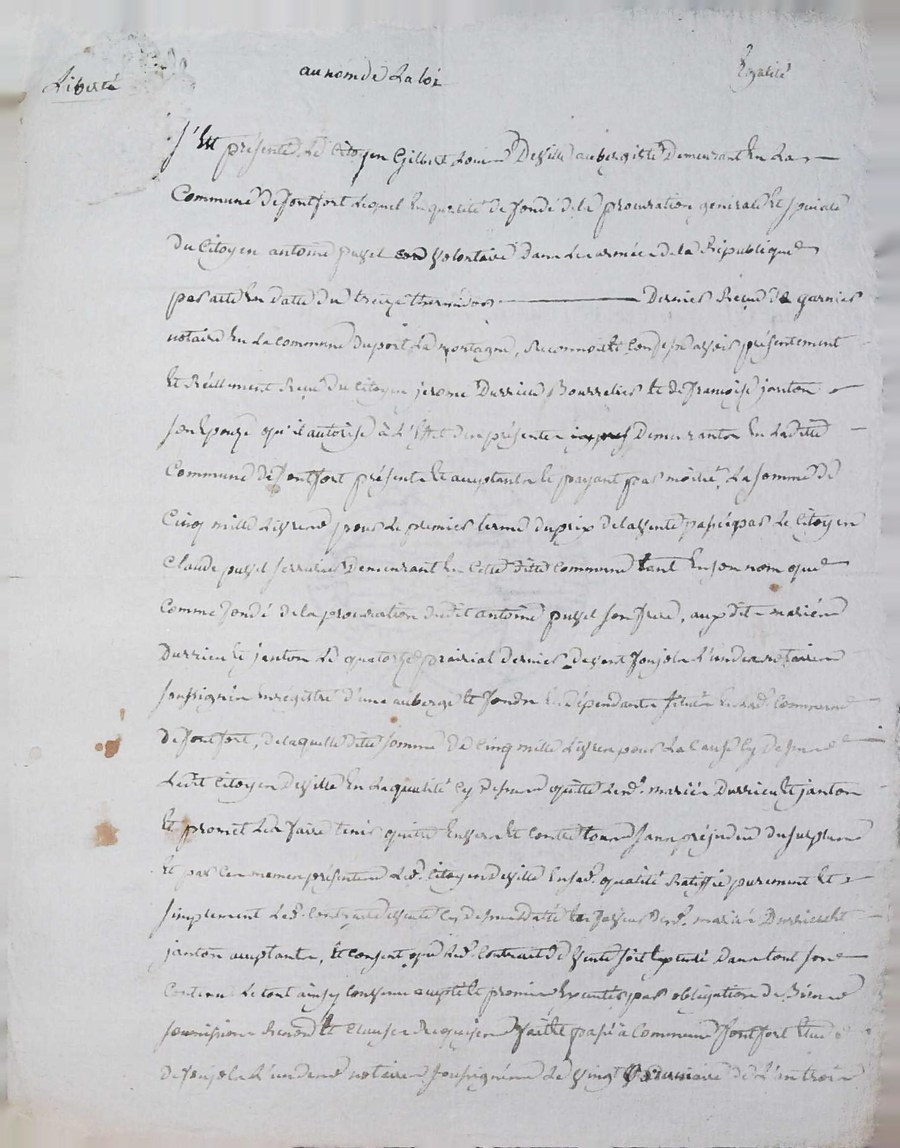 Liberté au nom de La loi Égalité
S'Est présenté Le Citoyen Gilbert Deville aubergiste Demeurant En La
Commune De fontfort Lequel En qualité de fondé de la procuration generale Et spéciale
Du Citoyen antoine puzel volontaire Dans Les armées de la République
par acte En date du treize thermidor Dernier Reçue De garnier
notaire En La commune Du port La montagne, Reconnoit Et Confesse avoir présentement
Et Réellement Reçu du Citoyen jerome Durrieu Bourrelier Et de françoise janton
son Epouze qu'il autorise à L'Effet des présentes Demeurantes En Ladite
Commune De fontfort présents Et acceptants Et payant par moitié, La somme De
Cinq mille Livres pour Le premier terme du prix de la vente passée par Le Citoyen
Claude puzel serrurier Demeurant En Cette dite Commune tant En son nom que
Comme fondé de la procuration dudit antoine puzel son frere, auxdits mariés
Durrieu Et janton Le quatorze prairial dernier devant L'un des notaires
soussignés Enregistré d'une auberge Et fonds En Dépendants située En Lad. Commune
de fontfort, de laquelle dite somme De Cinq mille Livres pour La Cause Cy Dessus
Ledit Citoyen Deville En La qualité Cy Dessus quitte Lesd. mariés Durrieu Et janton
Et promet Les faire tenir quittes Envers Et Contre tous sans préjudice du surplus
Et par Ces memes présentes Led. Citoyen Deville En sad. qualité Ratiffie purement Et
simplement Led. Contrat de vente Cy Dessus Datté En faveur Desd. mariés Durrieu Et
janton acceptants, Et consent que Led. Contrat De vente soit Exécuté Dans tout son
Contenu Le tout ainsy convenu accepté Et promis Exécuter par obligation de Biens
soumissions Et Clauses Requises fait Et passé à Commune fontfort Etude
De L'un des notaires soussignés Le vingt De L'an trois